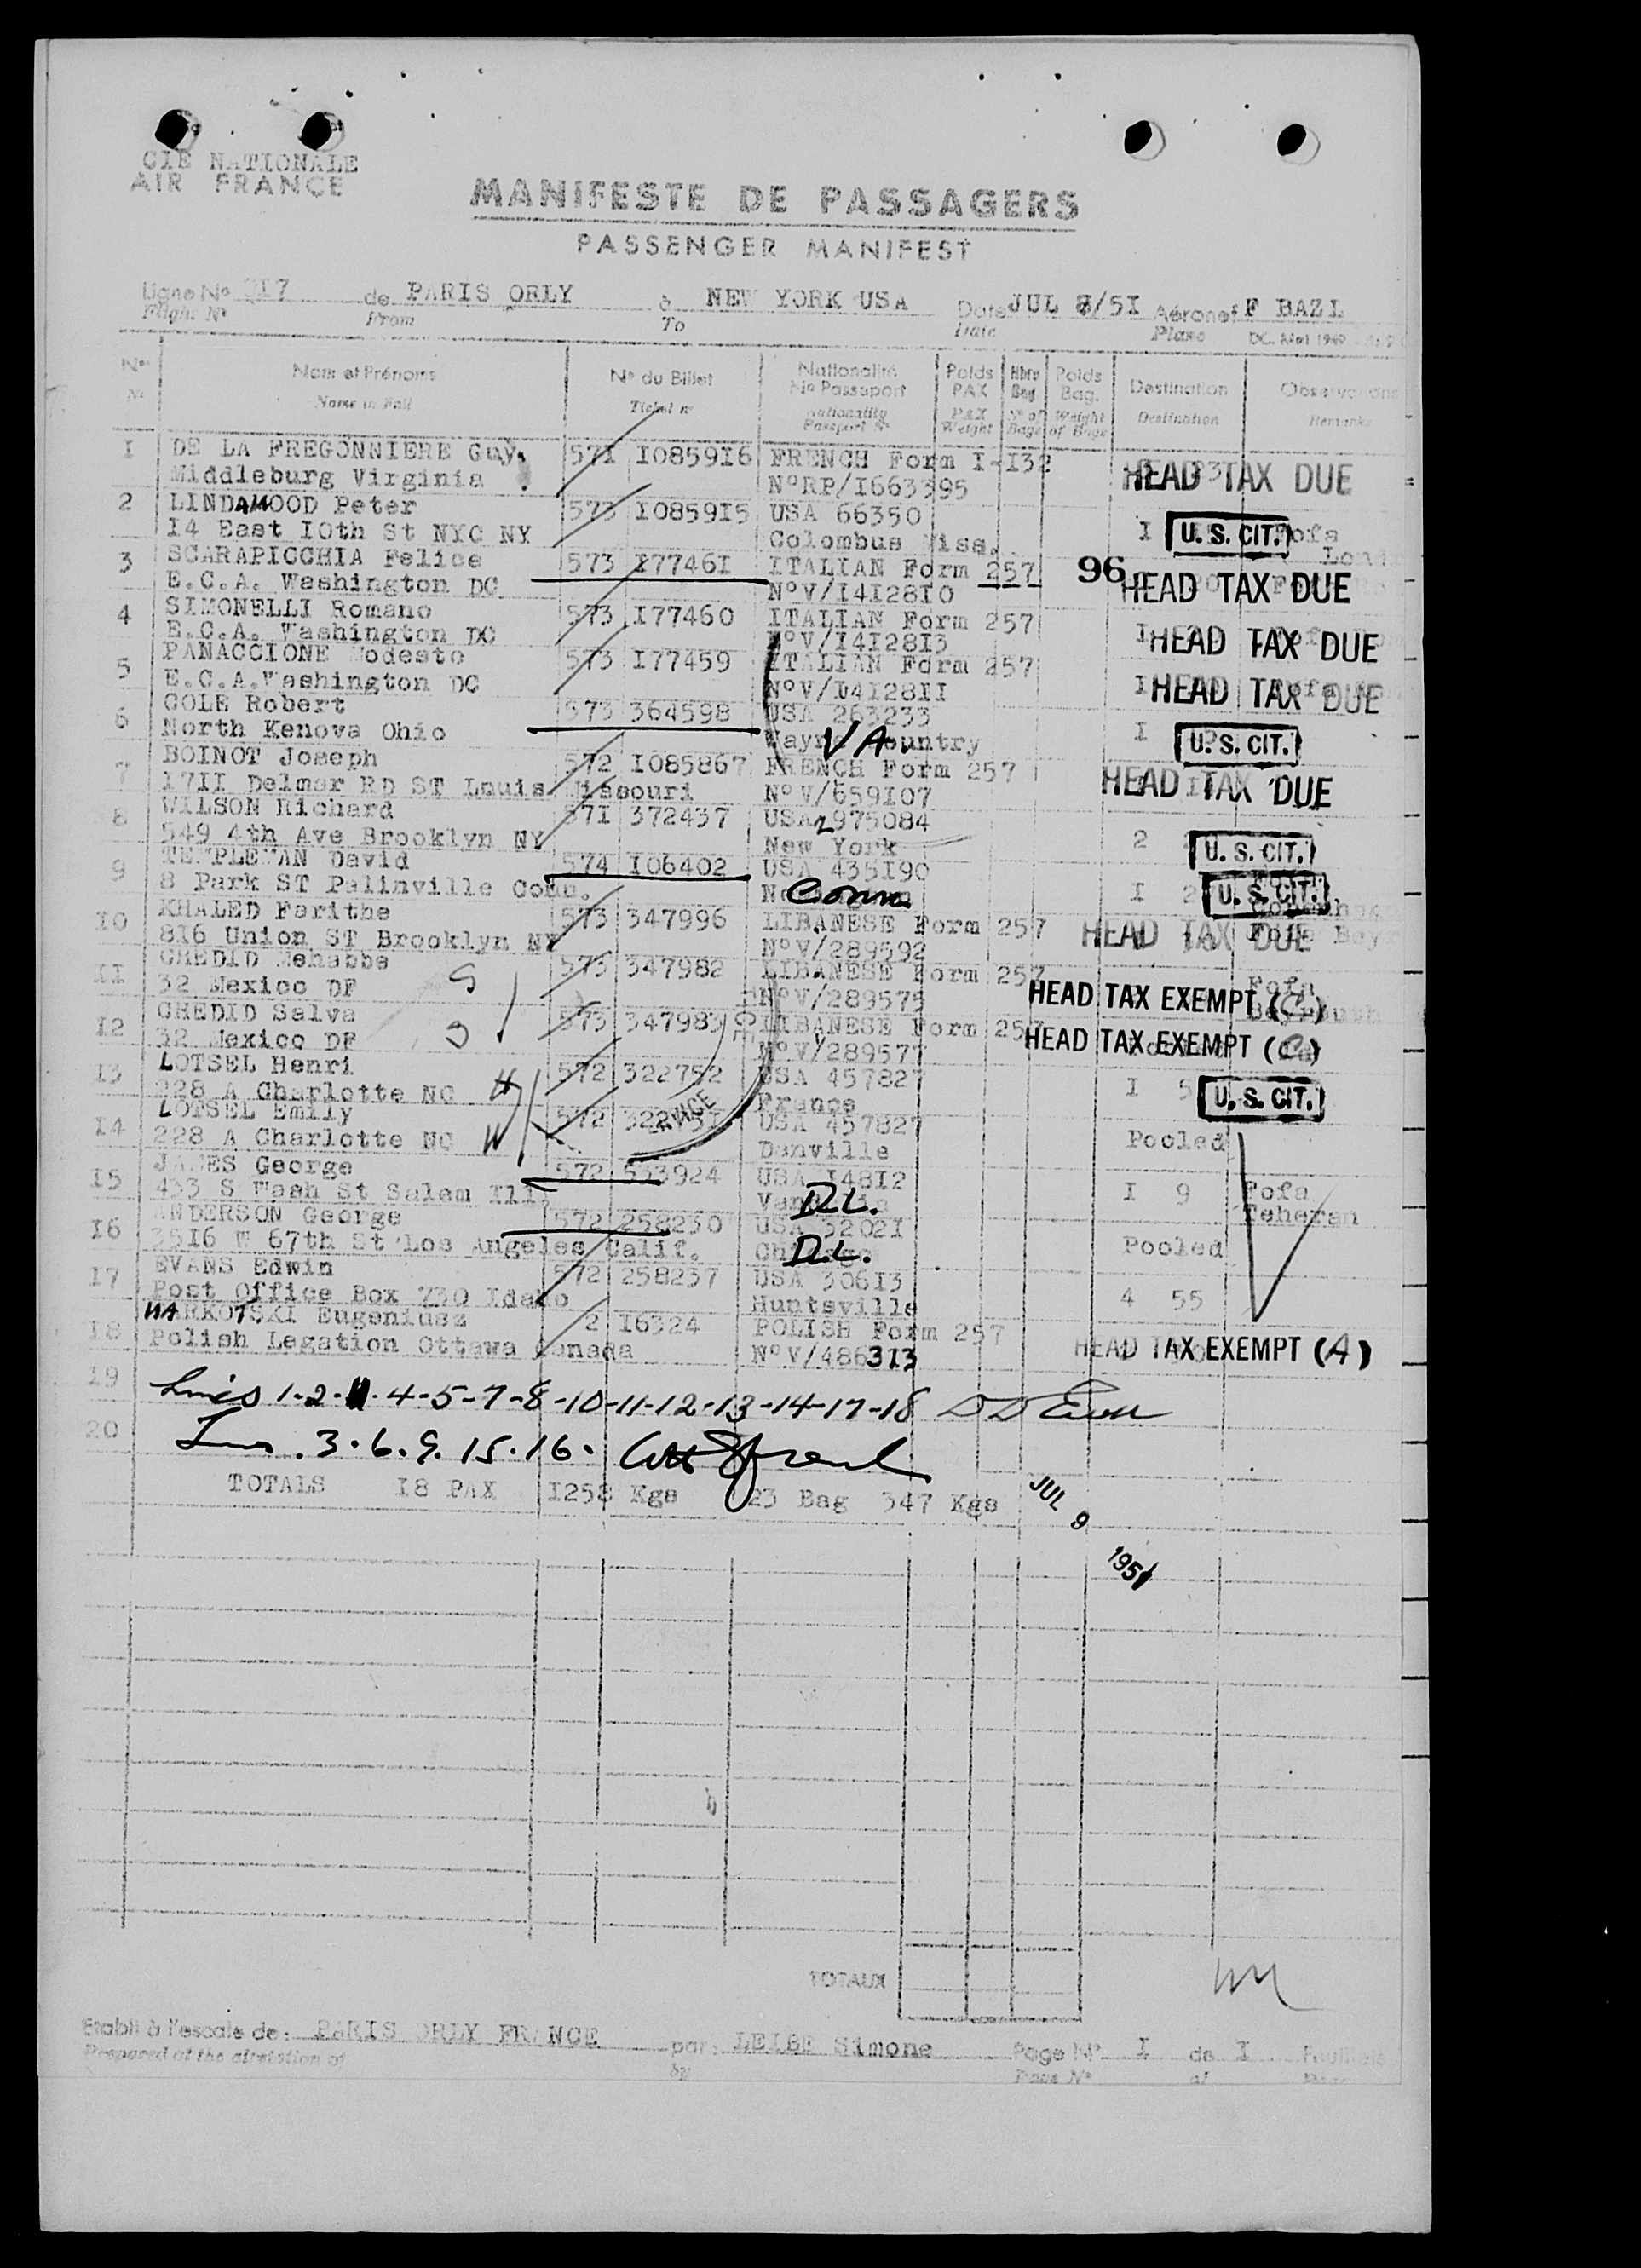 CIE NATIONALE
AIR FRANCE
MANIFESTE DE PASSAGERS
PASSENGER MANIFEST
Ligne No 017 de PARIS ORLY à NEW YORK USA Date JUL 8/5I Aéronef F BAZL
Flight No From To Date Plane
Nom et Prénoms No du Billet Nationalité Poids Nbre Poids Destination Observations
No Passeport PAX Bag Bag.
Name in Full Ticket no Nationality PAX No of Weight Destination Remarks
Passport No Weight Bags of Bags
I DE LA FREGONNIERE Guy. 57I I0859I6 FRENCH Form I-I32 HEAD TAX DUE
Middleburg Virginia N°RP/I663395
2 LINDAMOOD Peter 573 I0859I5 USA 66350 I U. S. CIT. Fofa
I4 East I0th St NYC NY Colombus Miss.
3 SCARAPICCHIA Felice 573 I7746I ITALIAN Form 257 96 HEAD TAX DUE
E.C.A. Washington DC N°V/I4I28I0
4 SIMONELLI Romano 573 I77460 ITALIAN Form 257 I HEAD TAX DUE
E.C.A. Washington DC N°V/I4I28I3
5 PANACCIONE Modesto 573 I77459 ITALIAN Form 257 I HEAD TAX DUE
E.C.A.Washington DC N°V/I4I28II
6 COLE Robert 573 364598 USA 263233 I U. S. CIT.
North Kenova Ohio Wayne Country VA.
7 BOINOT Joseph 572 I085867 FRENCH Form 257 HEAD TAX DUE
I7II Delmar RD ST Louis Missouri N°V/659I07
8 WILSON Richard 57I 372437 USA 2975084 2 U. S. CIT.
549 4th Ave Brooklyn NY New York
9 TEMPLEMAN David 574 I06402 USA 435I90 I 2 U. S. CIT.
8 Park ST Palinville Conn. Conn.
I0 KHALED Farithe 573 347996 LIBANESE Form 257 HEAD TAX DUE
8I6 Union ST Brooklyn NY N°V/289592
II CHEDID Mehabbe 573 347982 LIBANESE Form 257 HEAD TAX EXEMPT (C) Fofa
32 Mexico DF N°V/289575
I2 CHEDID Salva 573 347983 LIBANESE Form 257 HEAD TAX EXEMPT (C)
32 Mexico DF N°V/289577
I3 LOTSEL Henri 572 322752 USA 457827 I 5 U. S. CIT.
228 A Charlotte NC H France
I4 LOTSEL Emily 572 USA 457827 Pooled
228 A Charlotte NC W Danville
I5 JAMES George 572 533924 USA I48I2 I 9 Fofa
433 S Wash St Salem Ill. D.L. Teheran
I6 ANDERSON George 572 258230 USA 3202I Pooled
35I6 W 67th St Los Angeles Calif. D.L.
I7 EVANS Edwin 572 258237 USA 306I3 4 55
Post Office Box 730 Idaho Huntsville
I8 NARKOTSKI Eugeniusz 2 I6324 POLISH Form 257 HEAD TAX EXEMPT (A)
Polish Legation Ottawa Canada N°V/486313
I9 Lines 1-2-4-5-7-8-10-11-12-13-14-17-18
20 3.6.9.15.16.
TOTALS I8 PAX I258 Kgs 23 Bag 347 Kgs JUL 9
1951
TOTAUX
Etabli à l'escale de: PARIS ORLY FRANCE par: LEIBE Simone Page No I de I Feuillets
Prepared at the airstation of by Page No of